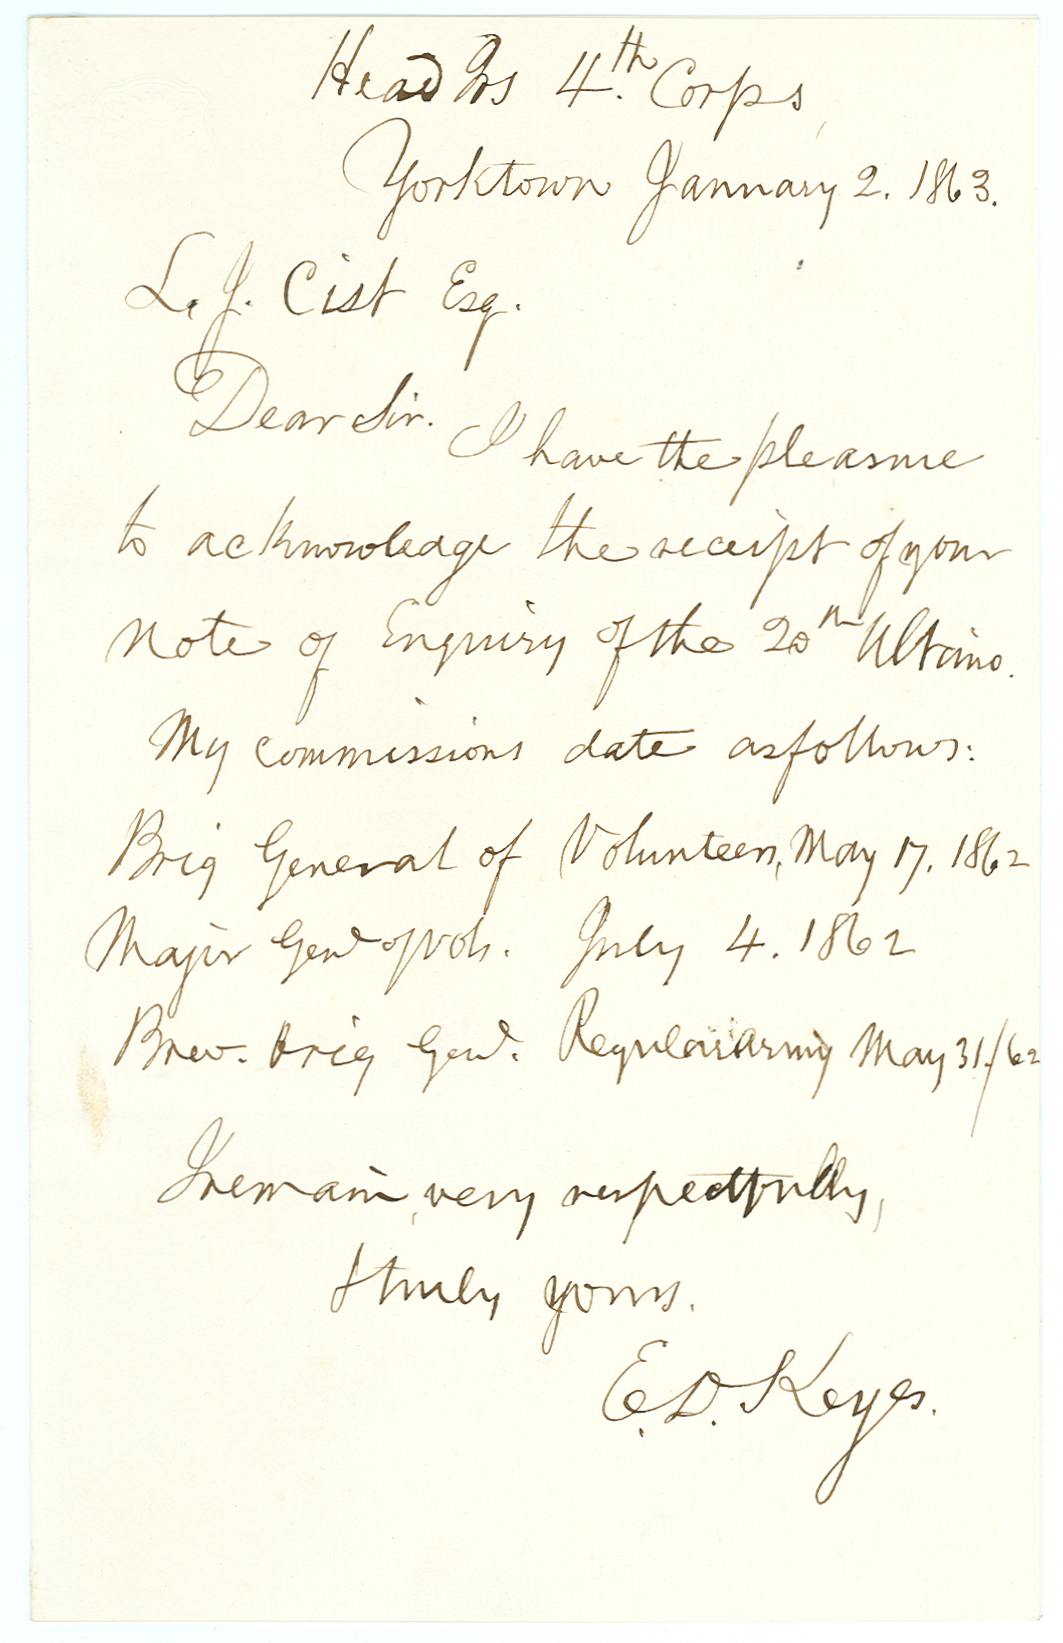 Head Qrs 4.th Corps,
Yorktown January 2. 1863.
L. J. Cist Esq.
Dear Sir. I have the pleasure
to acknowledge the receipt of your
note of Enquiry of the 20th Ultimo.
My commissions date as follows:
Brig General of Volunteers, May 17. 1862
Major Genl of Vols. July 4. 1862
Brev. brig Genl. Regular army May 31./62
I remain, very respectfully,
& truly yours.
E. D. Keyes.